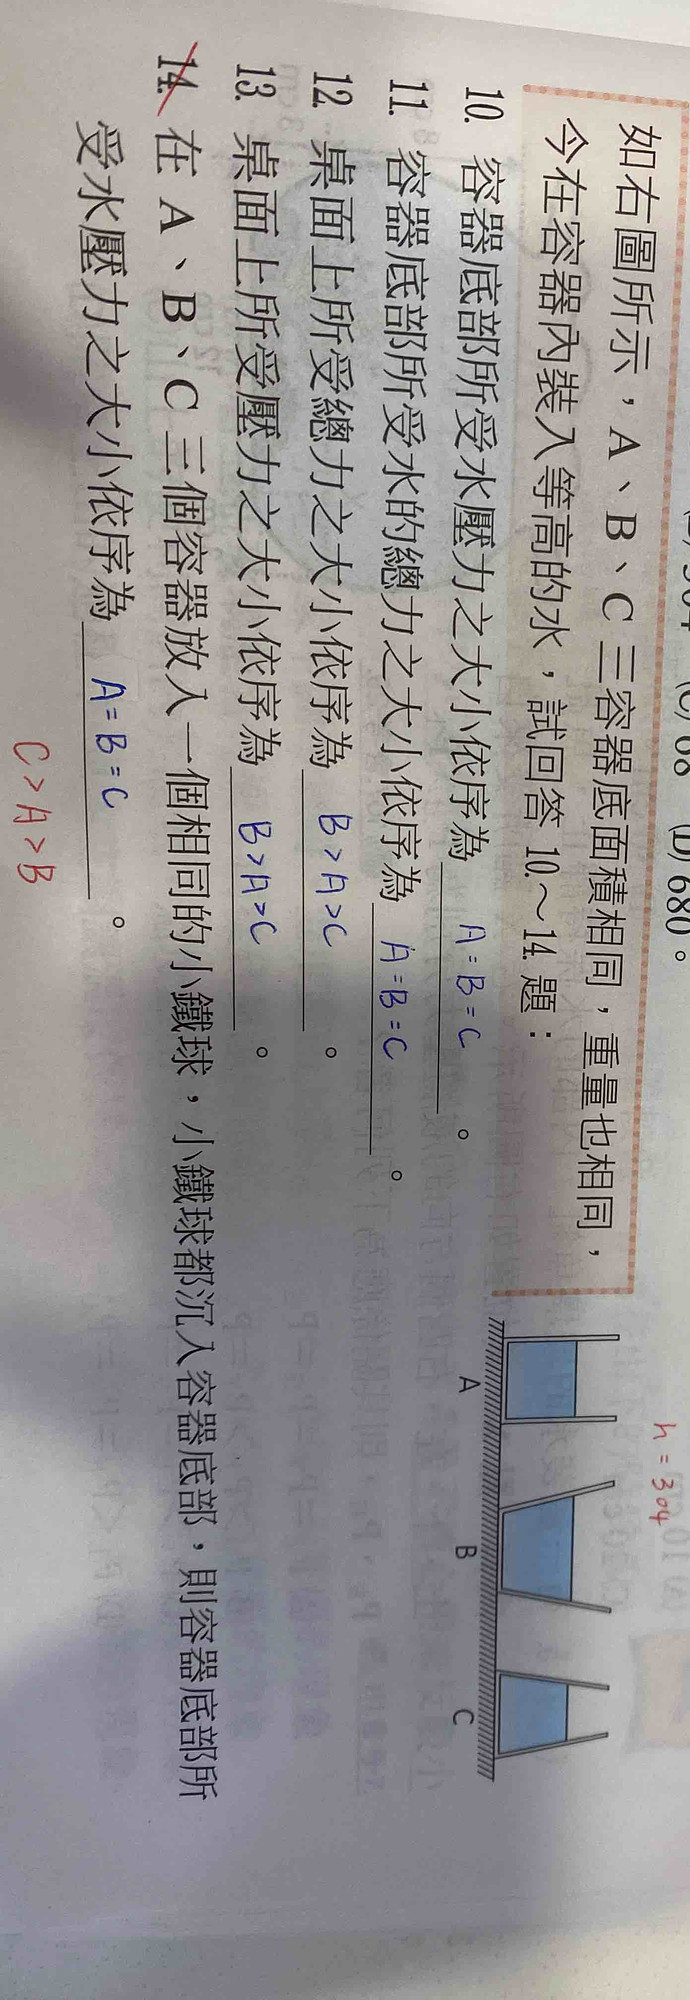 (C) 68 (D) 680。
h = 304
如右圖所示，A、B、C 三容器底面積相同，重量也相同，
今在容器內裝入等高的水，試回答 10.～14. 題：
A B C
10. 容器底部所受水壓力之大小依序為 A = B = C 。
11. 容器底部所受水的總力之大小依序為 A = B = C 。
12. 桌面上所受總力之大小依序為 B > A > C 。
13. 桌面上所受壓力之大小依序為 B > A > C 。
14. 在 A、B、C 三個容器放入一個相同的小鐵球，小鐵球都沉入容器底部，則容器底部所
受水壓力之大小依序為 A = B = C 。
C > A > B